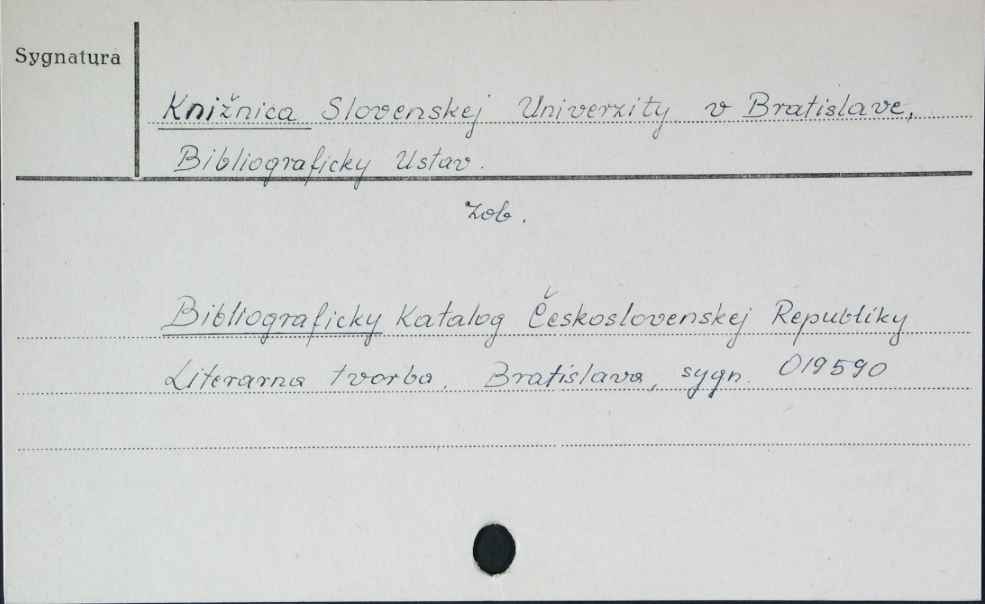 Sygnatura
Knižnica Slovenskej Univerzity v Bratislave,
Bibliograficky Ustav.
zob.
Bibliograficky Katalog Československej Republiky
Literarna tvorba, Bratislava, sygn. 019590